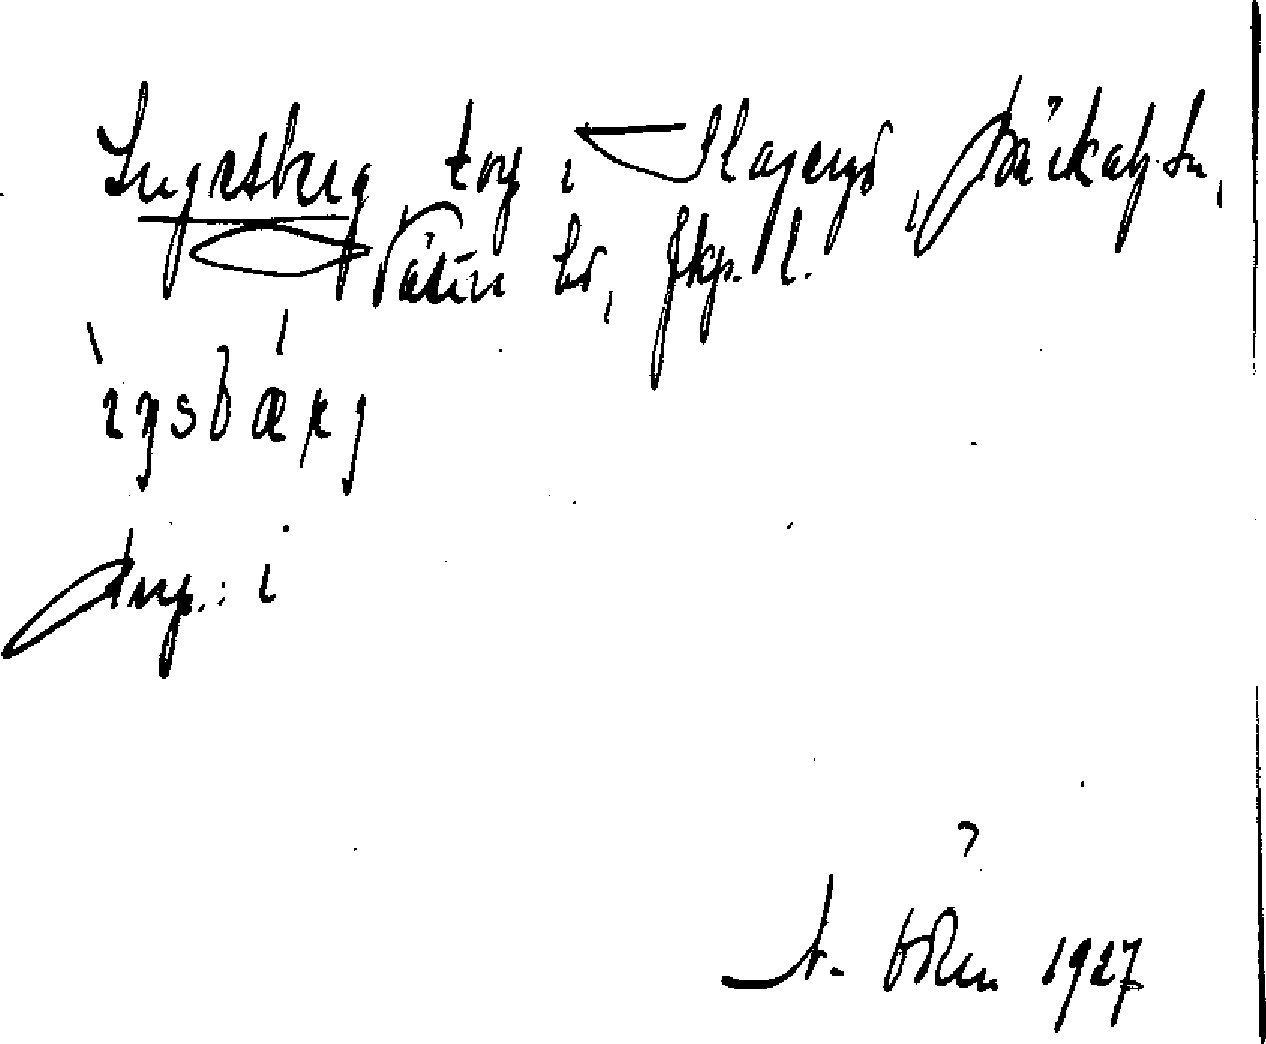 Ingretsberg torp i Slageryd, Bäckaby sn,
Västra hd, Jkp. l.
ìŋsbǽrj
Ånp.: i
1927